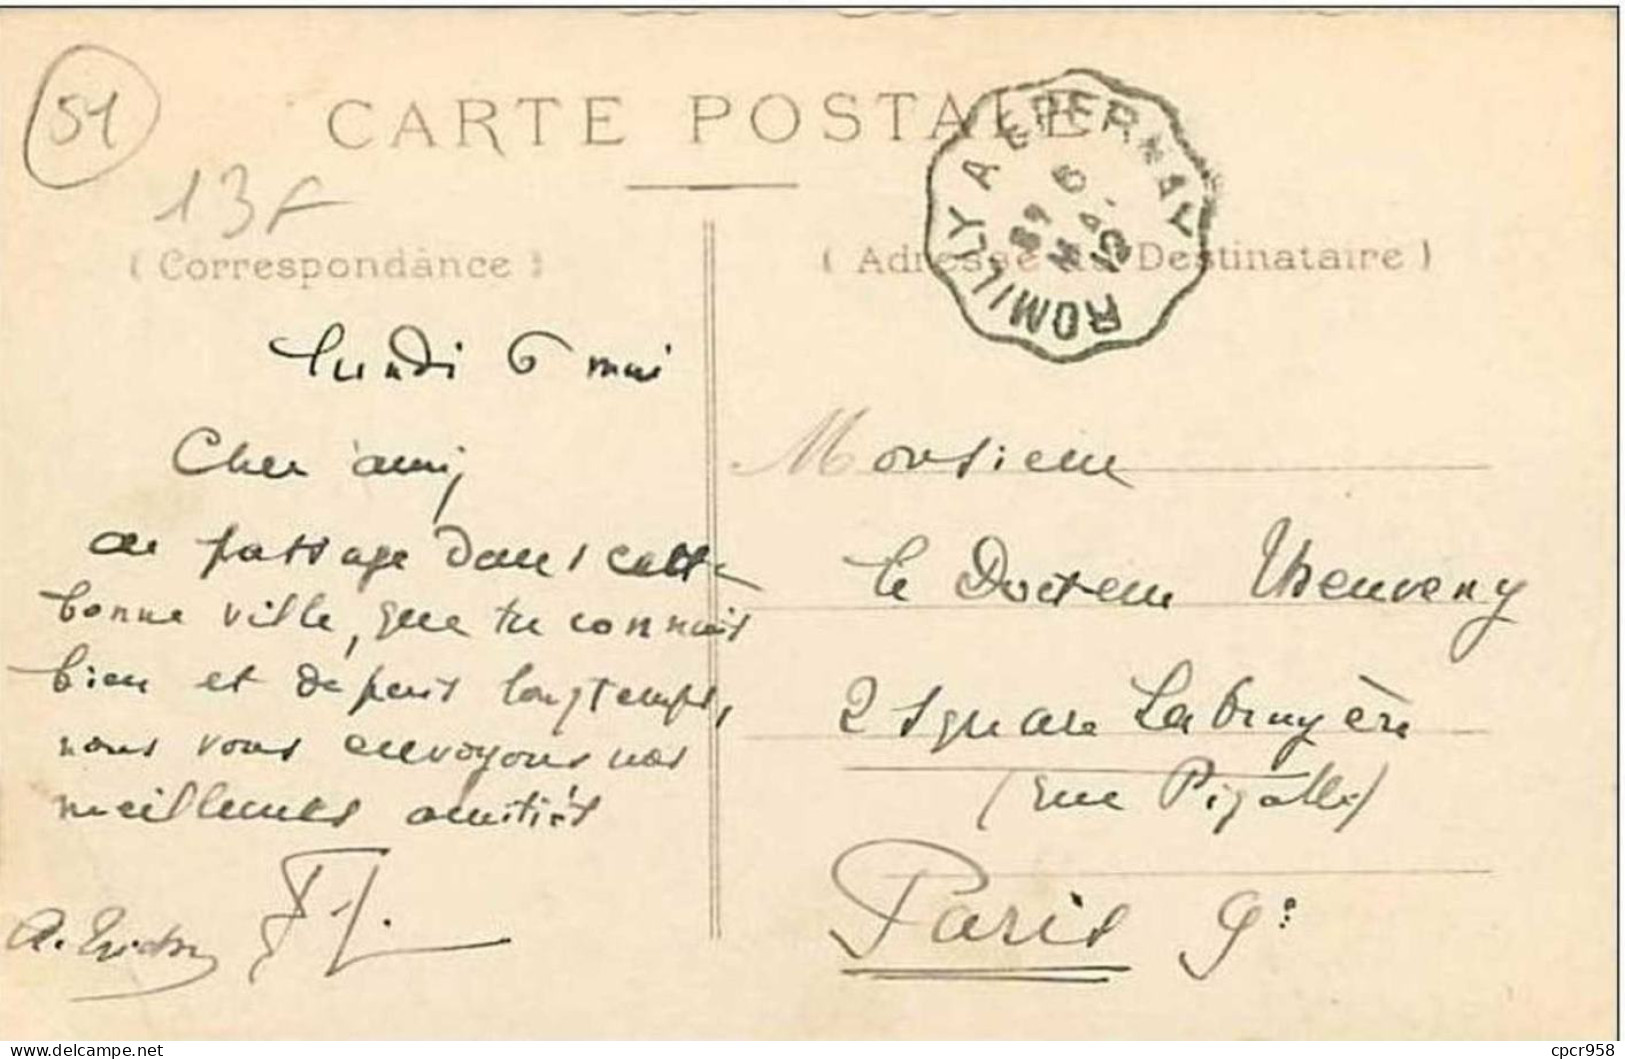 51
13F
CARTE POSTALE
(Correspondance)
(Adresse du Destinataire)
ROMILLY A EPERNAY
6
lundi 6 mai
Cher ami,
de passage dans cette
bonne ville, que tu connais
bien et depuis longtemps,
nous vous envoyons nos
meilleures amitiés
Monsieur
le Docteur Theuveny
2 square La Bruyère
(rue Pigalle)
Paris 9e
cpcr958